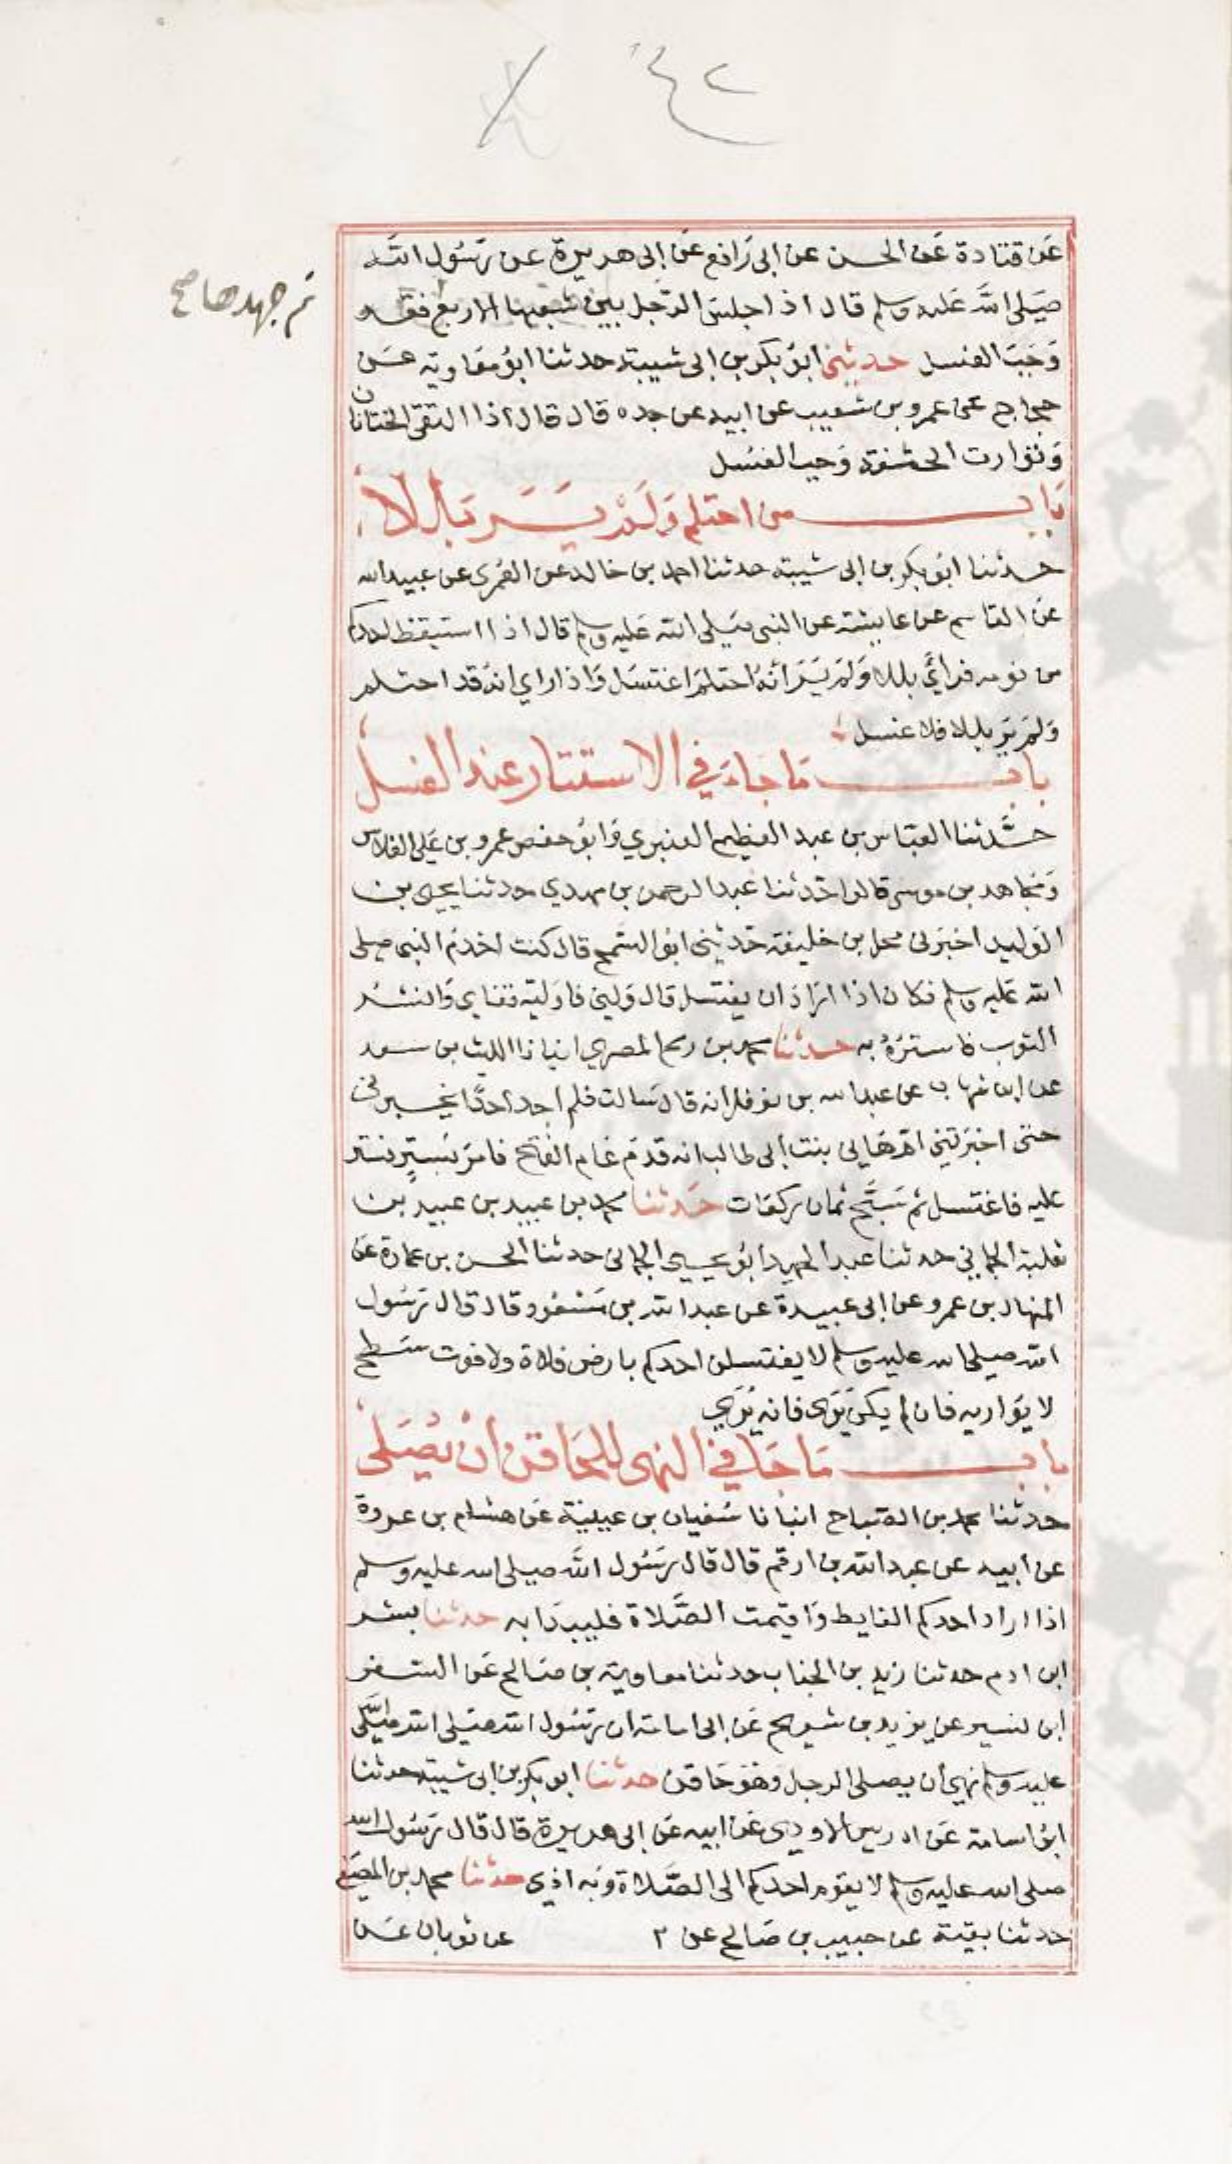 ٤٢
عن قتادة عن الحسن عن ابى رافع عن ابى هريرة عن رسول الله
ثم جهدها صح
صلى الله عليه وسلم قال اذا جلس الرجل بين شعبها الاربع فقد
وجب الغسل حدثني ابو بكر بن ابى شيبة حدثنا ابو معاوية عن
حجاج عن عمرو بن شعيب عن ابيه عن جده قال قال اذا التقى الختانان
وتوارت الحشفة وجب الغسل
باب من احتلم ولم ير بللا
حدثنا ابو بكر بن ابى شيبة حدثنا احمد بن خالد عن العمرى عن عبيد الله
عن القاسم عن عايشة عن النبى صلى الله عليه وسلم قال اذا استيقظ احدكم
من نومه فرأى بللا ولم ير انه احتلم اغتسل واذا راي انه قد احتلم
ولم ير بللا فلا غسل
باب ما جاء في الاستتار عند الغسل
حدثنا العباس بن عبد العظيم العنبري وابو حفص عمرو بن على الفلاس
ومجاهد بن موسى قالوا حدثنا عبد الرحمن بن مهدي حدثنا يحيى بن
الوليد اخبرنى محل بن خليفة حدثنى ابو السمح قال كنت اخدم النبى صلى
الله عليه وسلم فكان اذا اراد ان يغتسل قال ولينى فاوليه قفاي وانشر
الثوب فاستره به حدثنا محمد بن رمح المصري انبانا الليث بن سعد
عن ابن شهاب عن عبد الله بن نوفل انه قال سالت فلم اجد احدا يخبرنى
حتى اخبرتنى ام هانى بنت ابى طالب انه قدم عام الفتح فامر بستر فستر
عليه فاغتسل ثم سبح ثمان ركعات حدثنا محمد بن عبيد بن عبيد بن
ثعلبة الحمانى حدثنا عبد الحميد ابو يحيى الحمانى حدثنا الحسن بن عمارة عن
المنهال بن عمرو عن ابى عبيدة عن عبد الله بن مسعود قال قال رسول
الله صلى الله عليه وسلم لا يغتسلن احدكم بارض فلاة ولا فوق سطح
لا يواريه فان لم يكن يرى فانه يرى
باب ما جا في النهى للحاقن ان يصلى
حدثنا محمد بن الصباح انبانا سفيان بن عيينة عن هشام بن عروة
عن ابيه عن عبد الله بن ارقم قال قال رسول الله صلى الله عليه وسلم
اذا اراد احدكم الغايط واقيمت الصلاة فليبدا به حدثنا بشر
ابن ادم حدثنا زيد بن الحباب حدثنا معاوية بن صالح عن السفر
ابن نسير عن يزيد بن شريح عن ابى امامة ان رسول الله صلى الله
عليه وسلم نهى ان يصلى الرجل وهو حاقن حدثنا ابو بكر بن ابى شيبة حدثنا
ابو اسامة عن ادريس الاودى عن ابيه عن ابى هريرة قال قال رسول الله
صلى الله عليه وسلم لا يقوم احدكم الى الصلاة وبه اذي حدثنا محمد بن المصفى
حدثنا بقية عن حبيب بن صالح عن ٢ عن ثوبان عن